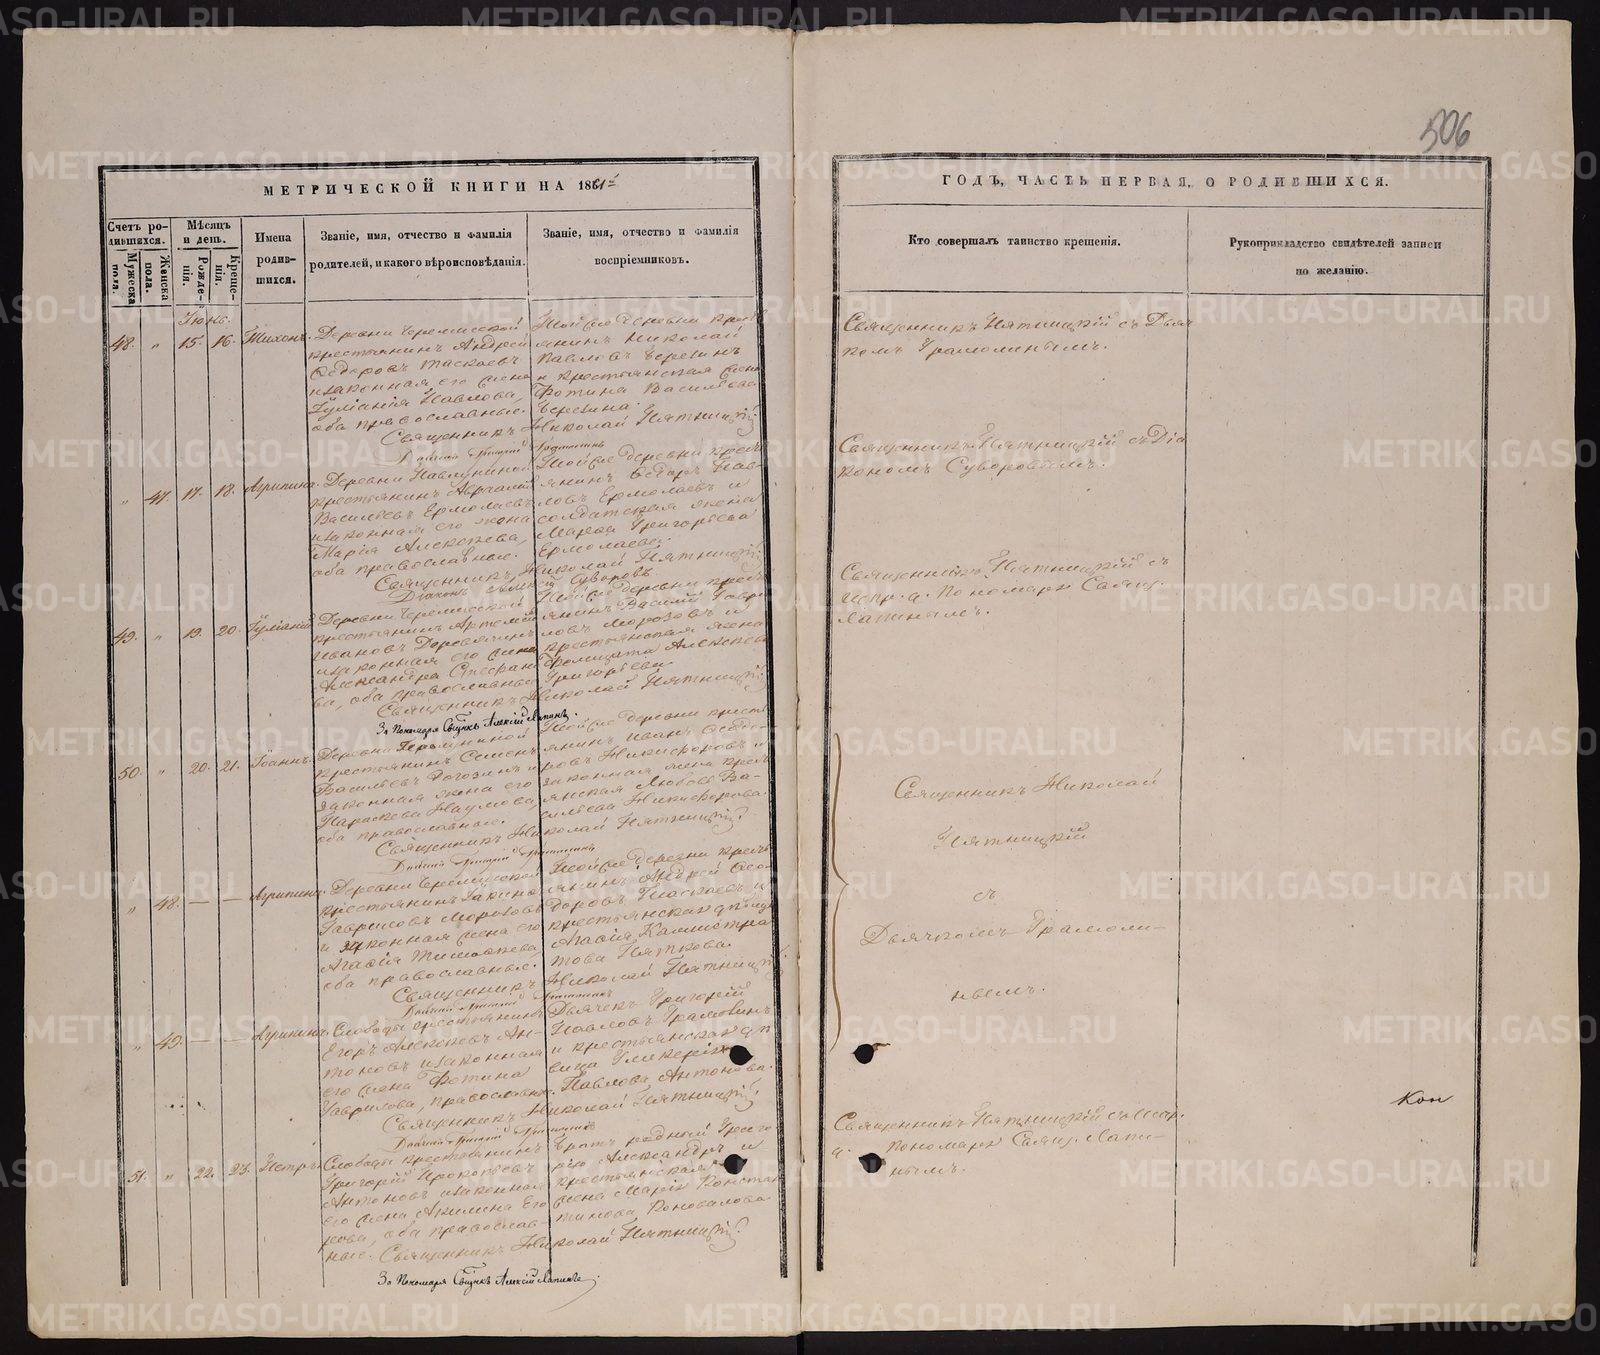 506
МЕТРИЧЕСКОЙ КНИГИ НА 1861й
ГОДЪ, ЧАСТЬ ПЕРВАЯ, О РОДИВШИХСЯ.
Счетъ родившихся.
Мужеска пола.
Женска пола.
Мѣсяцъ и день.
Рожденія.
Крещенія.
Имена родившихся.
Званіе, имя, отчество и фамилія родителей, и какого вѣроисповѣданія.
Званіе, имя, отчество и фамилія воспріемниковъ.
Кто совершалъ таинство крещенія.
Рукоприкладство свидѣтелей записи по желанію.
Іюнь.
48. " 15. 16. Тихонъ.
Деревни Черемисской
крестьянинъ Андрей
Ѳедоровъ Таскаевъ
и законная его жена
Іуліанія Павлова,
оба православные.
Той же деревни крестьянинъ Николай
Павловъ Березинъ
и крестьянская жена
Фотина Васильева
Березина.
Священникъ Николай Пятницкій
Священникъ Пятницкій съ Дьячкомъ Грамолинымъ.
" 47. 17. 18. Агрипина.
крестьянинъ
Васильевъ Ермолаевъ
и законная его жена
Марія Алексѣева,
оба православные.
Той же деревни крестьянинъ Ѳедоръ Павловъ Ермолаевъ и
солдатская жена
Марѳа Григорьева
Ермолаева.
Священникъ Николай Пятницкій
Діаконъ Суворовъ
Священникъ Пятницкій съ Діакономъ Суворовымъ.
49. " 19. 20. Іуліаній.
Деревни Черемисской
крестьянинъ Артемій
Ивановъ
и законная его жена
Александра Стефанова, оба православные
Той же деревни крестьянинъ Василій Гавриловъ Морозовъ и
крестьянская жена
Алексѣева
Григорьева.
Священникъ Николай Пятницкій
За Пономаря Свщнкъ Алексій Лапинъ.
Священникъ Пятницкій съ
испр. д. Пономаря Свящ.
Лапинымъ.
50. " 20. 21. Іоаннъ.
крестьянинъ Семенъ
Васильевъ Рогозинъ и
законная жена его
Параскева Наумова,
оба православные.
Той же деревни крестьянинъ Иванъ Ѳедоровъ Никифоровъ и
законная жена крестьянская Любовь Васильева Никифорова.
Священникъ Николай Пятницкій.
" 48. — — Агрипина.
Деревни Черемисской
крестьянинъ
Гавриловъ Морозовъ
и законная жена его
Агаѳія Тимоѳеева,
оба православные.
Той же деревни крестьянинъ Андрей Ѳедоровъ Таскаевъ и
крестьянская дѣвица
Агаѳія Каллистратова Пяткова.
Священникъ Николай Пятницкій.
" 49. — — Агрипина.
Слободы крестьянинъ
Егоръ Алексѣевъ Антоновъ и законная
его жена Фотина
Гаврилова, православные.
Дьячекъ Григорій
Павловъ Грамолинъ
и крестьянская дѣвица Гликерія
Павлова Антонова.
Священникъ Николай Пятницкій.
Священникъ Николай
Пятницкій
съ
Дьячкомъ Грамолинымъ.
51. " 22. 23. Петръ.
Слободы крестьянинъ
Григорій Прокопьевъ
Антоновъ и законная
его жена Акилина Егорова, оба православные.
братъ родный Григорію Александръ и
крестьянская
жена Марія Константинова Коновалова.
Священникъ Николай Пятницкій.
За Пономаря Свщнкъ Алексій Лапинъ.
Священникъ Пятницкій съ испр.
д. пономаря Свящ. Лапинымъ.
Кон
METRIKI.GASO-URAL.RU